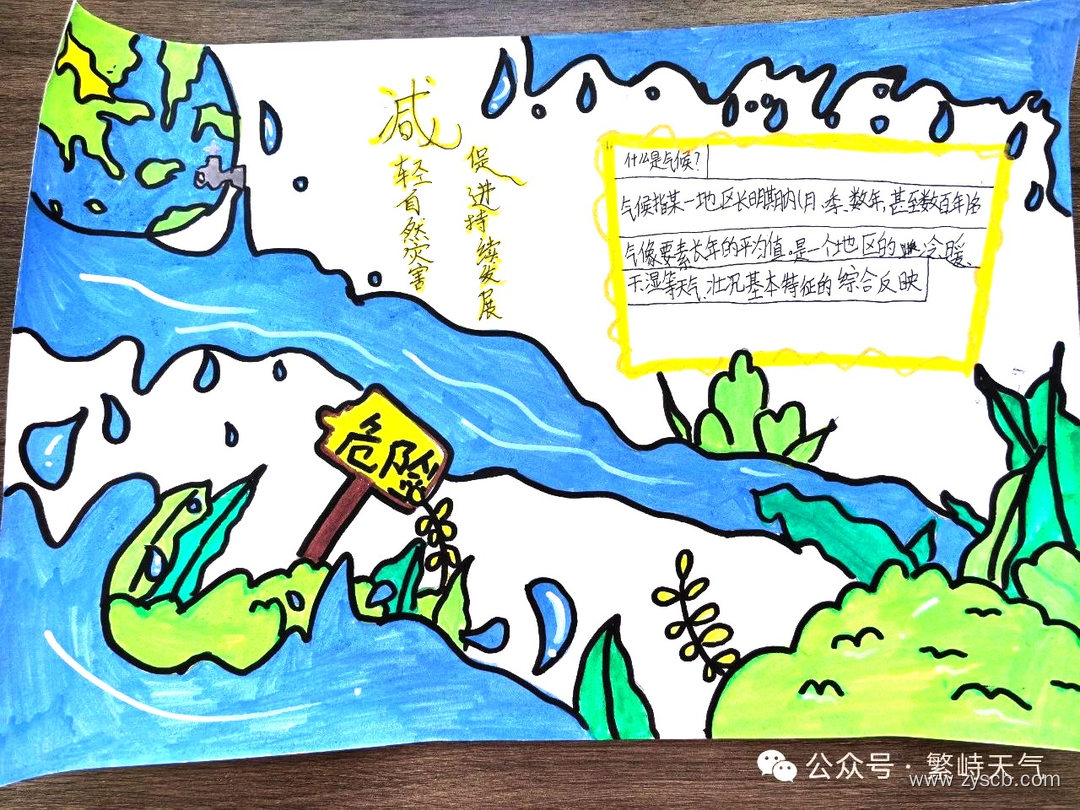 减轻自然灾害
促进持续发展
什么是气候?
气候指某一地区长期内(月、季、数年,甚至数百年)各
气像要素长年的平均值。是一个地区的冷暖、
干湿等天气、状况基本特征的综合反映
危险
公众号·繁峙天气
www.zyscb.com